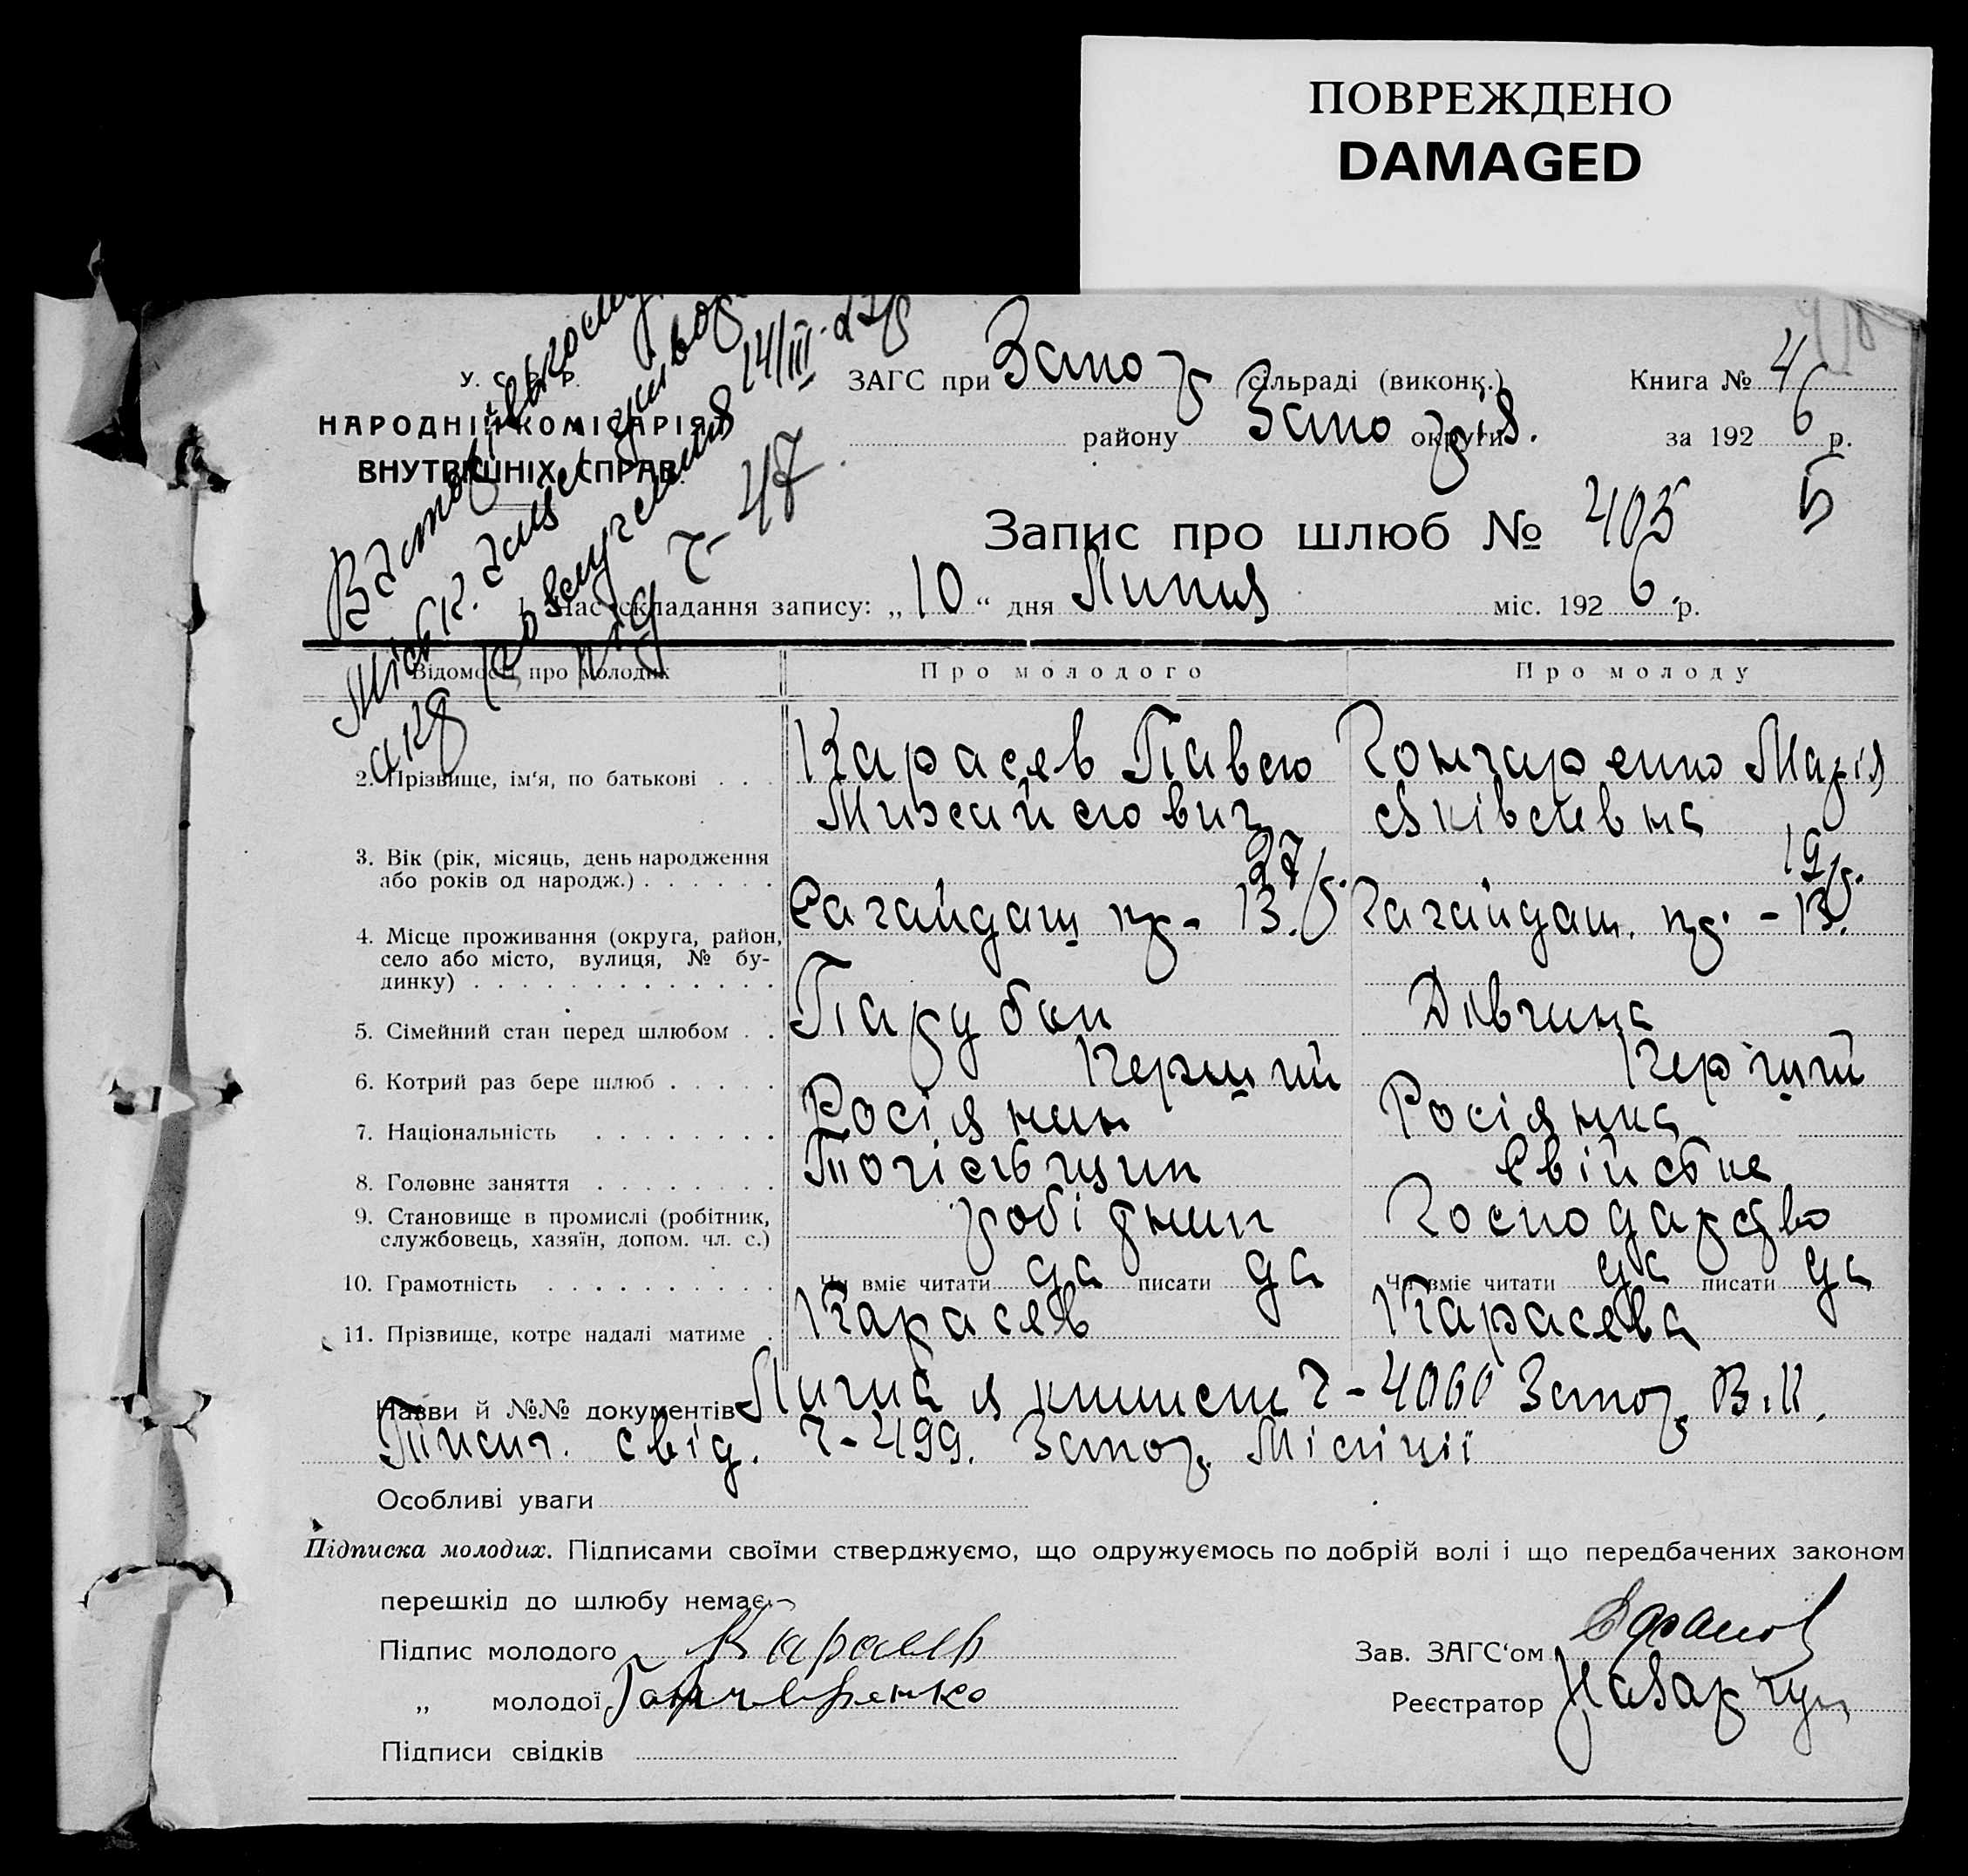 ПОВРЕЖДЕНО
DAMAGED
У. С. Р. Р.
НАРОДНІЙ КОМІСАРІЯТ
ВНУТРІШНІХ СПРАВ.
14/III-27р
ч-47.
ЗАГС при Запор сільраді (виконк.) Книга № 4
району Запоріз. округи за 1926 р.
Б
Запис про шлюб № 405
1. Час складання запису: „10“ дня Липня міс. 1926 р.
Відомості про молодих Про молодого Про молоду
2. Прізвище, ім‘я, по батькові . . . Карасев Павло Гончаренко Марія
Михайлович Яківлевна
3. Вік (рік, місяць, день народження
або років од народж.) . . . . . . 27 р. 19 р.
4. Місце проживання (округа, район, Сагайдач. пр- 13. Сагайдач. пр. - 13.
село або місто, вулиця, № бу-
динку) . . . . . . . . . . . . .
5. Сімейний стан перед шлюбом . . Парубок Дівчина
6. Котрий раз бере шлюб . . . . . Перший Перший
7. Національність . . . . . . . . Росіянин Росіянка
8. Головне заняття . . . . . . . . Точільщик Свійске
9. Становище в промислі (робітник, робідник Господарство
службовець, хазяїн, допом. чл. с.)
10. Грамотність . . . . . . . . . . Чи вміє читати да писати да Чи вміє читати да писати да
11. Прізвище, котре надалі матиме . Карасев Карасева
Назви й №№ документів Лична я книжка ч-4060 Запор. В.К.
Тисич. свід. ч-499. Запор. Міліції
Особливі уваги
Підписка молодих. Підписами своїми стверджуємо, що одружуємось по добрій волі і що передбачених законом
перешкід до шлюбу немає.
Підпис молодого Карасев Зав. ЗАГС‘ом
„ молодої Гончаренко Реєстратор
Підписи свідків